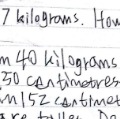 7 kilograms. How
m 40 kilograms
50 centimetres
m 152 centimet
are taller.